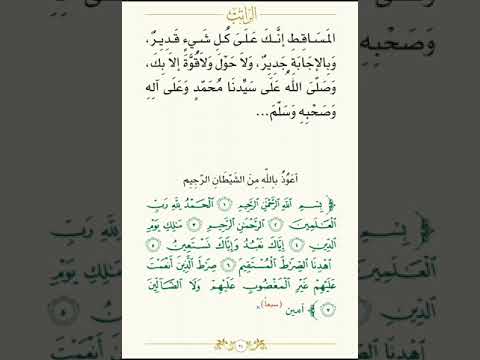 الرَّاتِبُ
المَسَاقِطِ إِنَّكَ عَلَىَ كُلِ شَيءٍ قَدِيرٌ،
وَبِالإجَابَةِ جَدِيرٌ، وَلاَ حَوْلَ وَلاَقُوَّةَ إلاَ بِكَ،
وَصَلَّىَ اللهُ عَلَى سَيِّدنَا مُحَمَّدٍ وَعَلَى آلِهِ
وَصَحْبِهِ وَسَلَّمَ...
اَعَوُذُ بِاللهِ مِنَ الشَيْطَانِ الرّجِيم
﴿ بِسْمِ اللَّهِ الرَّحْمَٰنِ الرَّحِيمِ ۝١ الْحَمْدُ لِلَّهِ رَبِّ
الْعَالَمِينَ ۝٢ الرَّحْمَٰنِ الرَّحِيمِ ۝٣ مَالِكِ يَوْمِ
الدِّينِ ۝٤ إِيَّاكَ نَعْبُدُ وَإِيَّاكَ نَسْتَعِينُ ۝٥
اهْدِنَا الصِّرَاطَ الْمُسْتَقِيمَ ۝٦ صِرَاطَ الَّذِينَ أَنْعَمْتَ
عَلَيْهِمْ غَيْرِ الْمَغْضُوبِ عَلَيْهِمْ وَلَا الضَّالِّينَ
۝٧ ﴾ آمين (سبعاً)